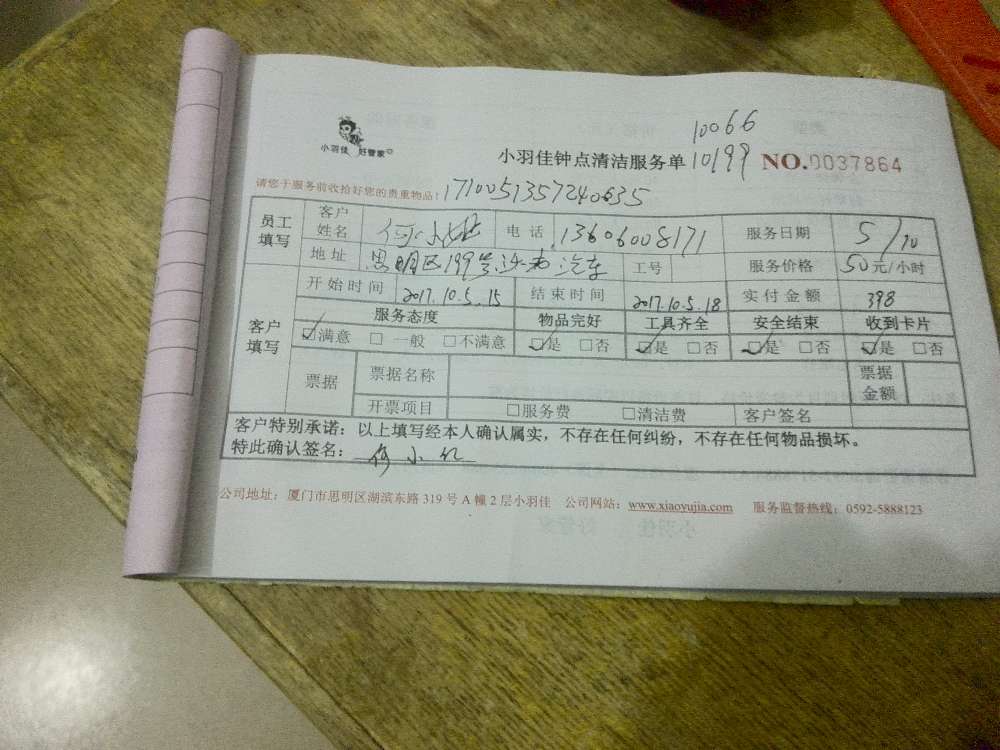 10066
小羽佳 好管家
小羽佳钟点清洁服务单 10199 NO.0037864
请您于服务前收拾好您的贵重物品! 1710051357240635
员工填写 客户姓名 何小 电话 13606008171 服务日期 5/10
地址 思明区199号 汽车 工号 服务价格 50元/小时
客户填写 开始时间 2017.10.5.15 结束时间 2017.10.5.18 实付金额 398
服务态度 物品完好 工具齐全 安全结束 收到卡片
☑满意 □一般 □不满意 ☑是 □否 ☑是 □否 ☑是 □否 ☑是 □否
票据 票据名称 票据金额
开票项目 □服务费 □清洁费 客户签名
客户特别承诺：以上填写经本人确认属实，不存在任何纠纷，不存在任何物品损坏。
特此确认签名： 何小
公司地址：厦门市思明区湖滨东路 319 号 A 幢 2 层小羽佳 公司网站：www.xiaoyujia.com 服务监督热线：0592-5888123